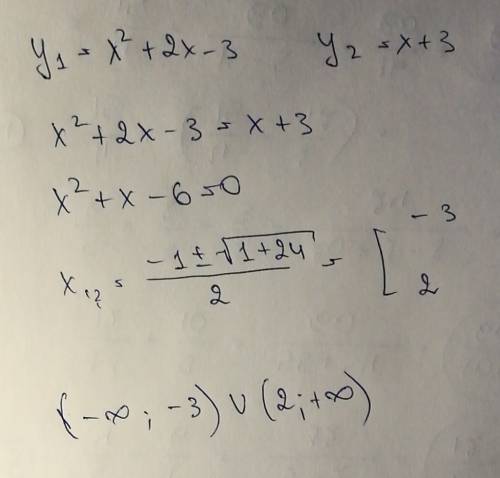 y₁ = x² + 2x - 3 y₂ = x + 3
x² + 2x - 3 = x + 3
x² + x - 6 = 0
x₁,₂ = (-1 ± √(1 + 24)) / 2 = [ -3 2
(-∞; -3) ∪ (2; +∞)